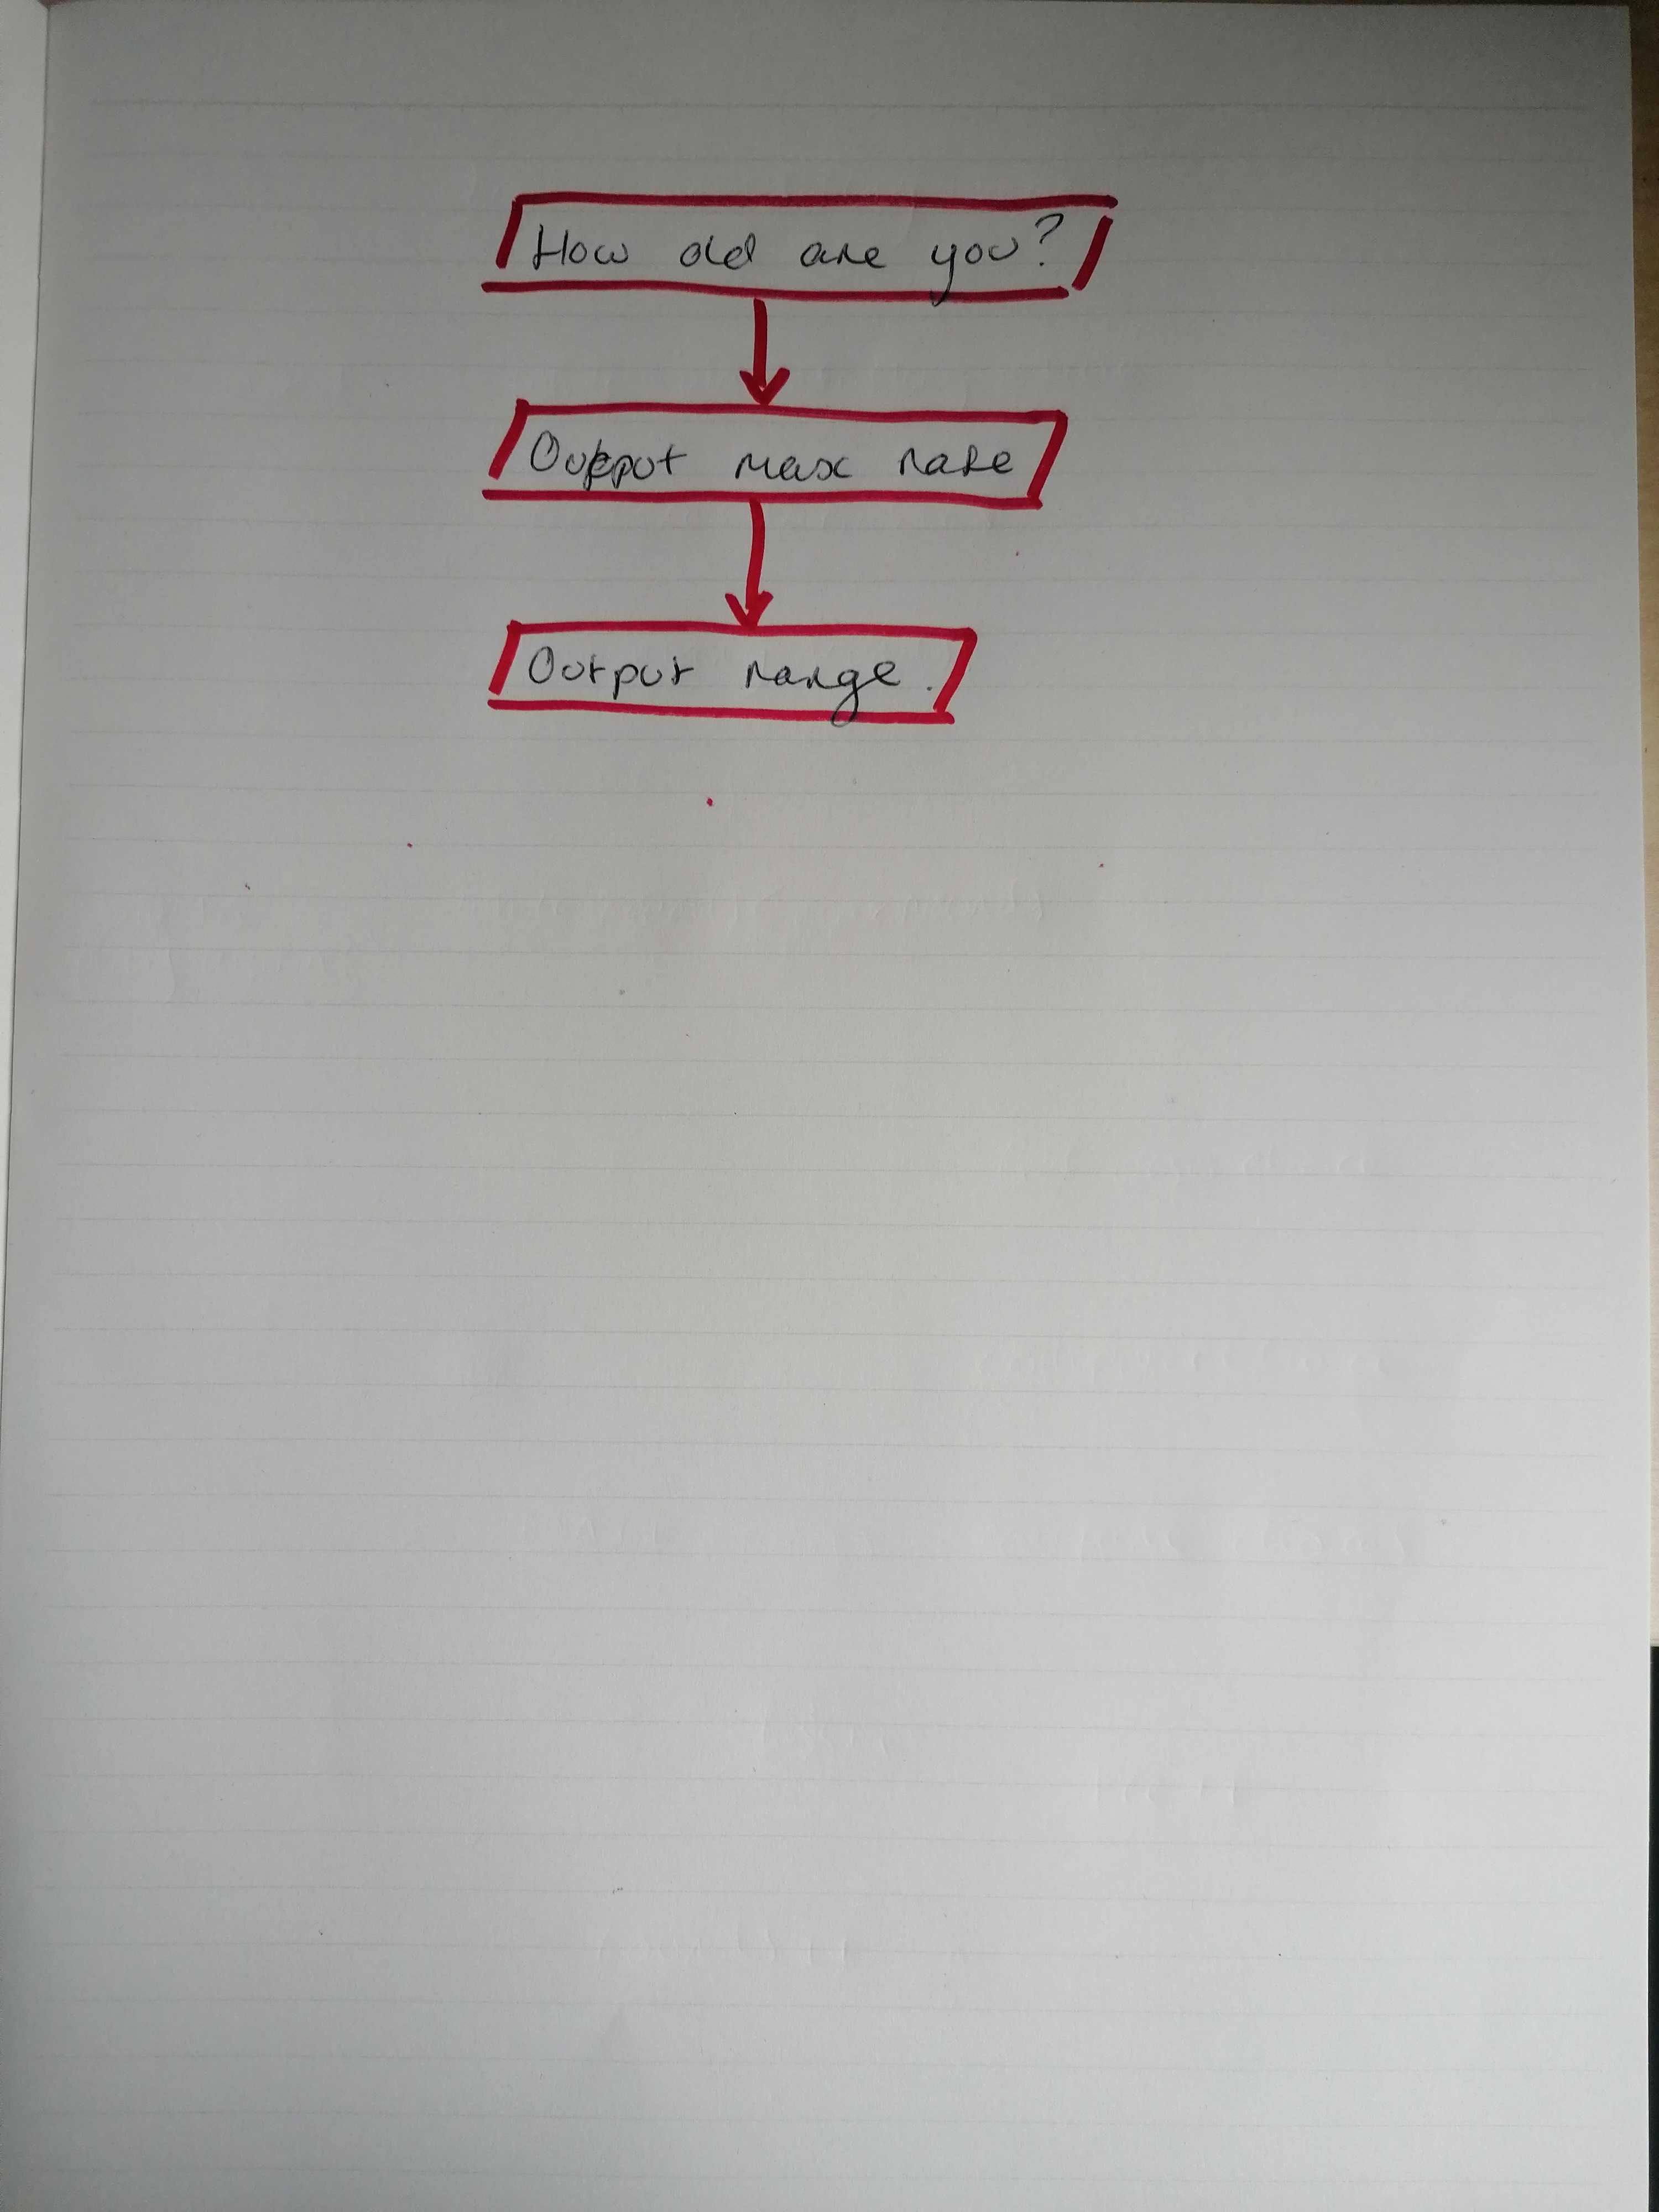 How old are you?
Output max rate
Output range.